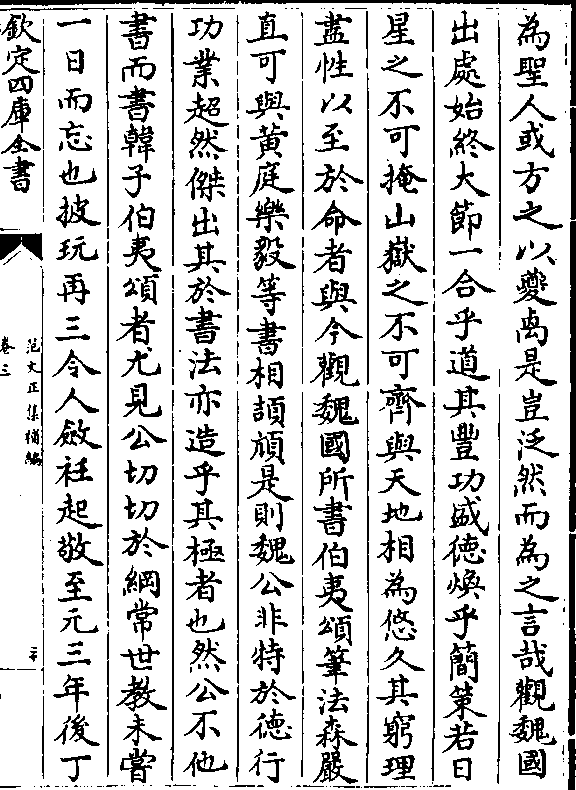 為聖人或方之以夔卨是豈泛然而為之言哉觀魏國
出處始終大節一合乎道其豐功盛德煥乎簡策若日
星之不可掩山嶽之不可齊與天地相為悠久其窮理
盡性以至於命者與今觀魏國所書伯夷頌筆法森嚴
直可與黃庭樂毅等書相頡頏是則魏公非特於德行
功業超然傑出其於書法亦造乎其極者也然公不他
書而書韓子伯夷頌者尤見公切切於綱常世教未嘗
一日而忘也披玩再三令人斂衽起敬至元三年後丁
欽定四庫全書
范文正集補編
卷三
二十